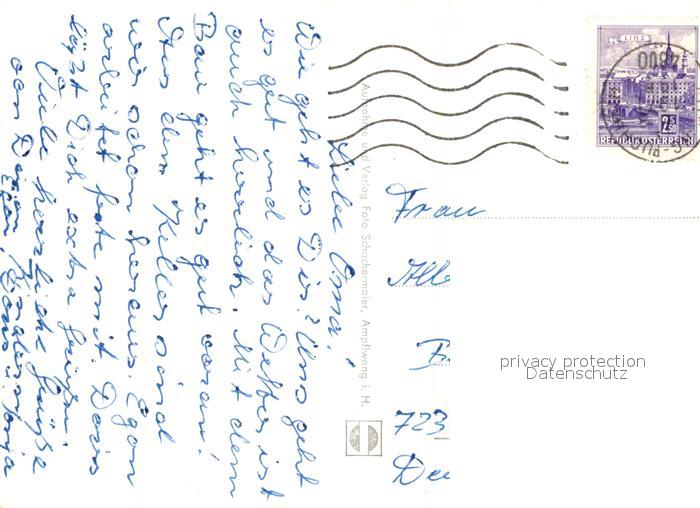 Liebe Oma!
Wie geht es Dir? Uns geht
es gut und das Wetter ist
auch herrlich. Mit dem
Bau geht es gut voran!
Aus dem Keller sind
wir schon heraus. Egon
arbeitet feste mit. Doris
läßt Dich extra grüßen.
Viele herzliche Grüße
von Deinen
Egon, Doris
Aufnahme und Verlag Foto Schachermaier, Ampflwang i. H.
LINZ
4800
2.50
REPUBLIK ÖSTERREICH
Frau
723
privacy protection
Datenschutz